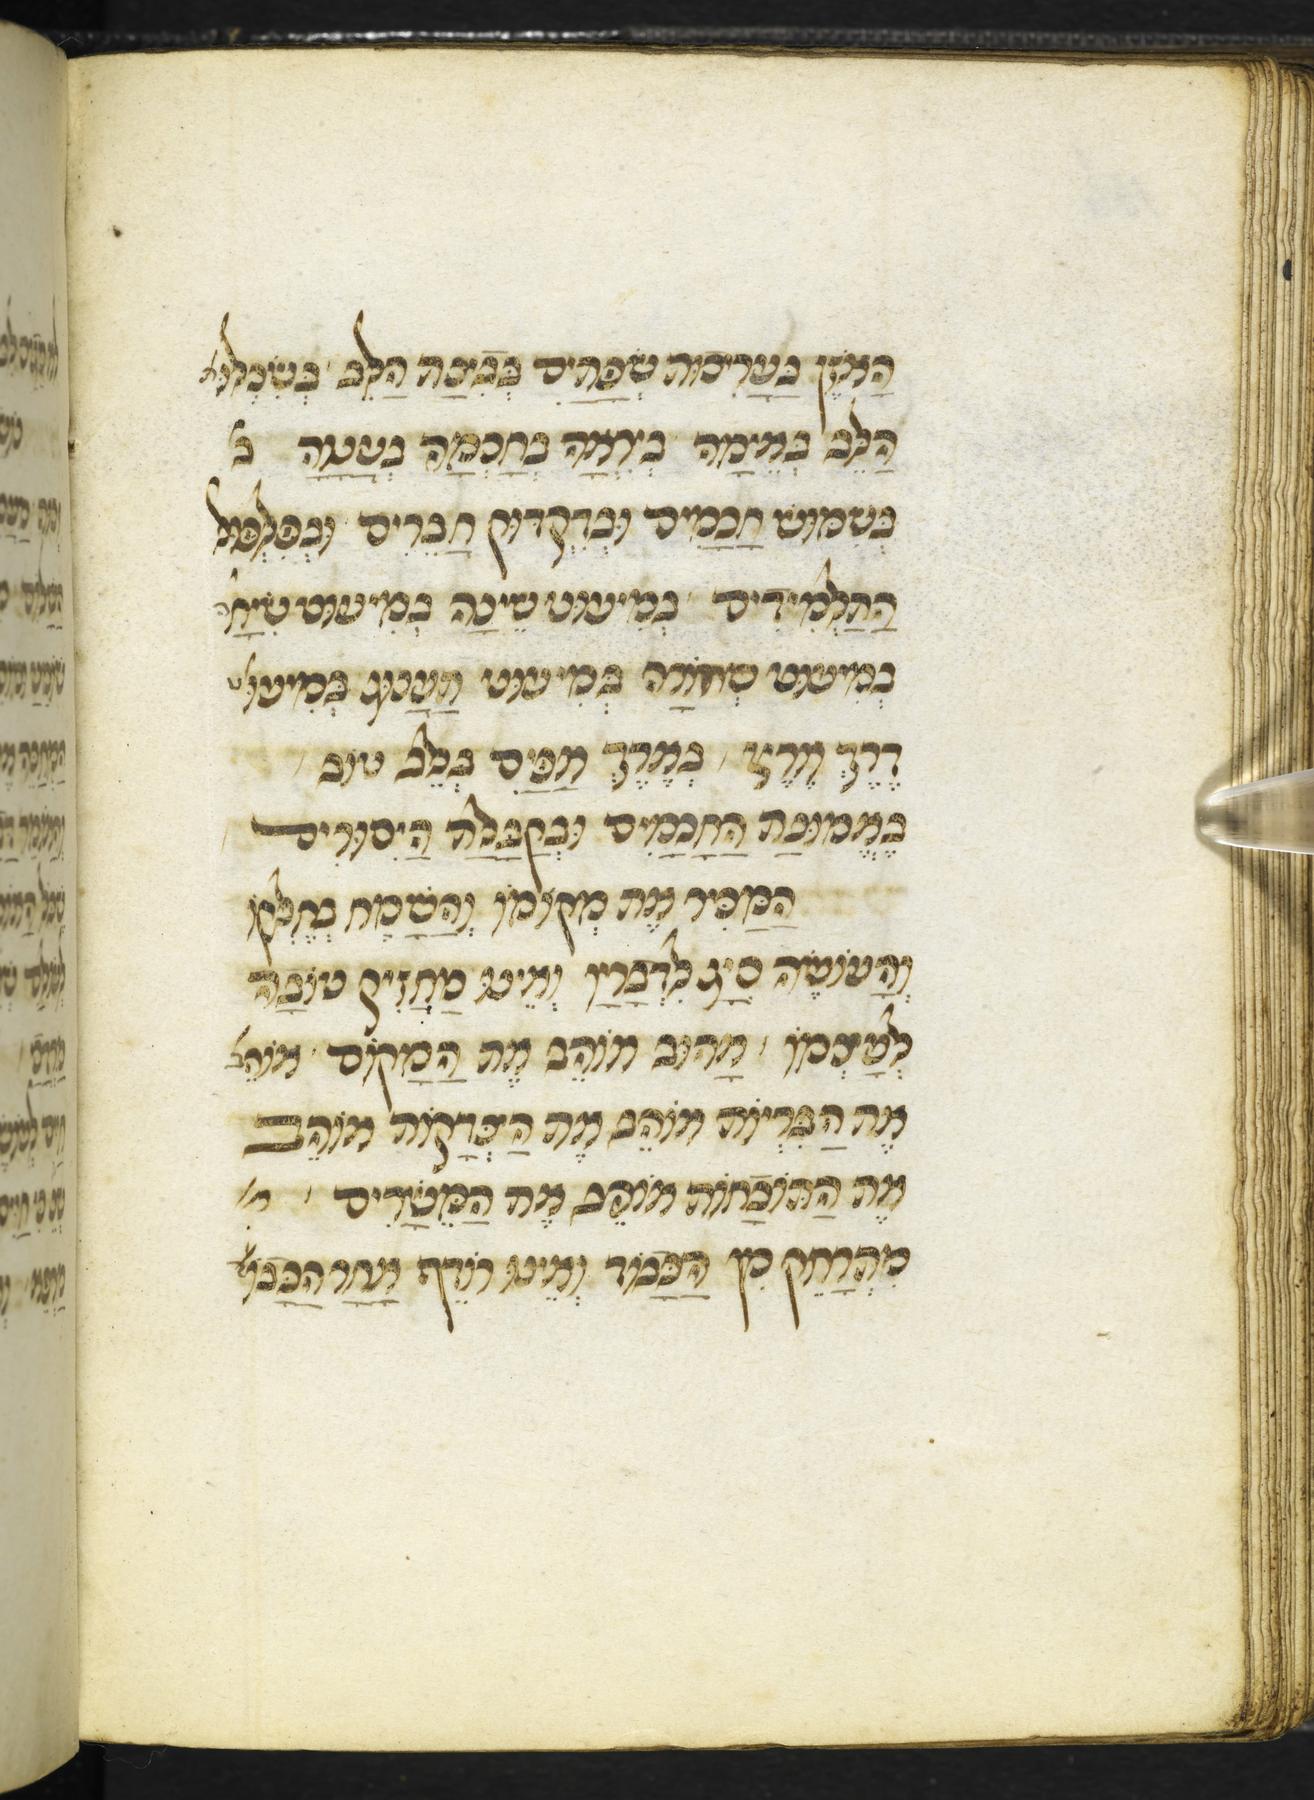 הָאֹזֶן בַּעֲרִיכוּת שְׂפָתַיִם בְּבִינַת הַלֵּב בְּשִׂכְלוּת
הַלֵּב בְּאֵימָה בְּיִרְאָה בְּחָכְמָה בַּעֲנָוָה ב
בְּשִׁמּוּשׁ חֲכָמִים וּבְדִקְדּוּק חֲבֵרִים וּבְפִלְפּוּל
הַתַּלְמִידִים בְּמִיעוּט שֵׁינָה בְּמִיעוּט שִׂיחָה
בְּמִיעוּט סְחוֹרָה בְּמִיעוּט תַּעֲנוּג בְּמִיעוּט
דֶרֶךְ אֶרֶץ בְּאֶרֶךְ אַפַּיִם בְּלֵב טוֹב
בֶּאֱמוּנַת הַחֲכָמִים וּבְקַבָּלַת הַיִסּוּרִים
הַמַּכִּיר אֶת מְקוֹמוֹ וְהַשָּׂמֵחַ בְּחֶלְקוֹ
וְהָעוֹשֶׂה סְיָג לִדְבָרָיו וְאֵינוֹ מַחֲזִיק טוֹבָה
לְעַצְמוֹ אָהוּב אוֹהֵב אֶת הַמָּקוֹם אוֹהֵב
אֶת הַבְּרִיוֹת אוֹהֵב אֶת הַצְּדָקוֹת אוֹהֵב
אֶת הַתּוֹכָחוֹת אוֹהֵב אֶת הַמֵּישָׁרִים
מִתְרַחֵק מִן הַכָּבוֹד וְאֵינוֹ רוֹדֵף אַחַר הַכָּבוֹד